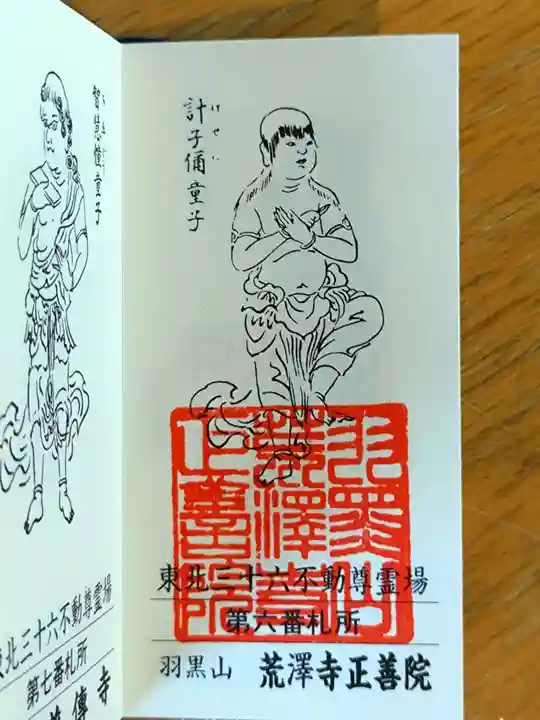 計子儞童子
けいしに
東北三十六不動尊霊場
第六番札所
羽黒山 荒澤寺正善院
羽黒山
荒澤寺
正善院
智慧幢童子
東北三十六不動尊霊場
第七番札所
傳寺